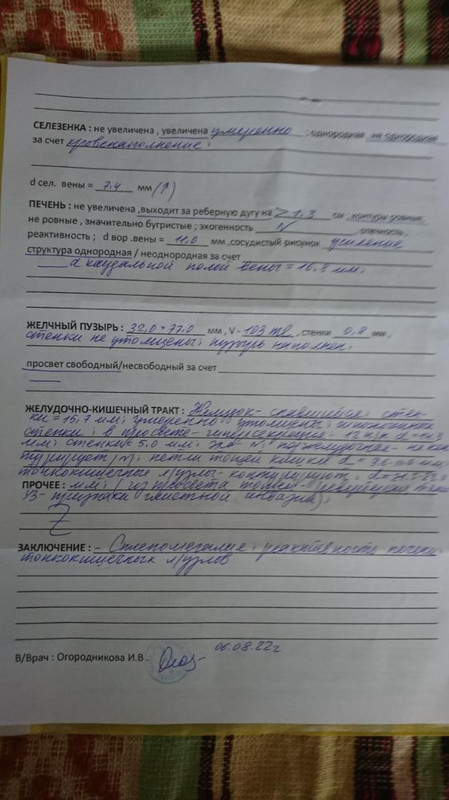 СЕЛЕЗЕНКА : не увеличена , увеличена умеренно ; однородная , не однородная
за счет кровенаполнение .
d сел. вены = 7.4 мм (↑)
ПЕЧЕНЬ : не увеличена ,выходит за реберную дугу на > 1,3 см , контуры ровные,
не ровные , значительно бугристые ; эхогенность N
реактивность ; d вор .вены = 11.0 мм ,сосудистый рисунок усиление
структура однородная / неоднородная за счет
d каудальной полой вены = мм.
ЖЕЛЧНЫЙ ПУЗЫРЬ : 32.0 × 77.0 мм , V - 103 ml , стенки 0,8 мм ,
стенки не утолщены, пузырь наполнен.
просвет свободный/несвободный за счет
ЖЕЛУДОЧНО-КИШЕЧНЫЙ ТРАКТ : Желудок - спавшийся, стен-
ки = 15,7 мм, умеренно утолщены,
стенки, в просвете - гиперсекреция, 12 п/к d =
мм, стенки = 5.0 мм, поджелудочная - не кон-
турирует /N. петли тощей кишки d = мм
тонкокишечные л/узлы - контурируют, d =
ПРОЧЕЕ : мм, ( из просвета
УЗ - признаки глистной инвазии).
Z
ЗАКЛЮЧЕНИЕ : - Спленомегалия, реактивность печени,
тонкокишечных л/узлов
06.08.22г
В/Врач : Огородникова И.В